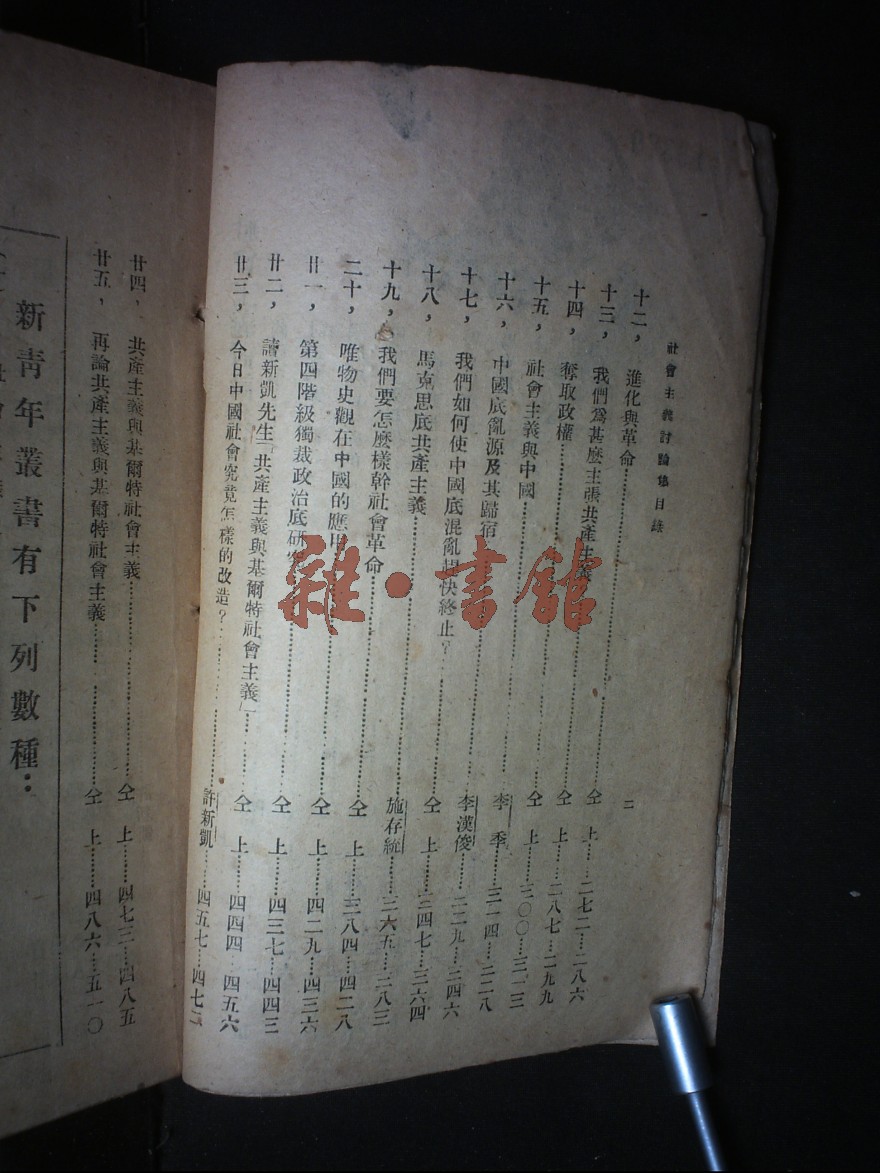 社會主義討論集目錄 二
十二，進化與革命……仝上……二七二……二八六
十三，我們爲甚麼主張共產主義……仝上……二八七……二九九
十四，奪取政權……仝上……三〇〇……三一三
十五，社會主義與中國……李季……三一四……三二八
十六，中國底亂源及其歸宿……李漢俊……三二九……三四六
十七，我們如何使中國底混亂趕快終止？……仝上……三四七……三六四
十八，馬克思底共產主義……施存統……三六五……三八三
十九，我們要怎麼樣幹社會革命……仝上……三八四……四二八
二十，唯物史觀在中國的應用……仝上……四二九……四三六
廿一，第四階級獨裁政治底研究……仝上……四三七……四四三
廿二，讀新凱先生「共產主義與基爾特社會主義」……仝上……四四四……四五六
廿三，今日中國社會究竟怎樣的改造？……許新凱……四五七……四七二
廿四，共產主義與基爾特社會主義……仝上……四七三……四八五
廿五，再論共產主義與基爾特社會主義……仝上……四八六……五一〇
新青年叢書有下列數種：
雜·書館